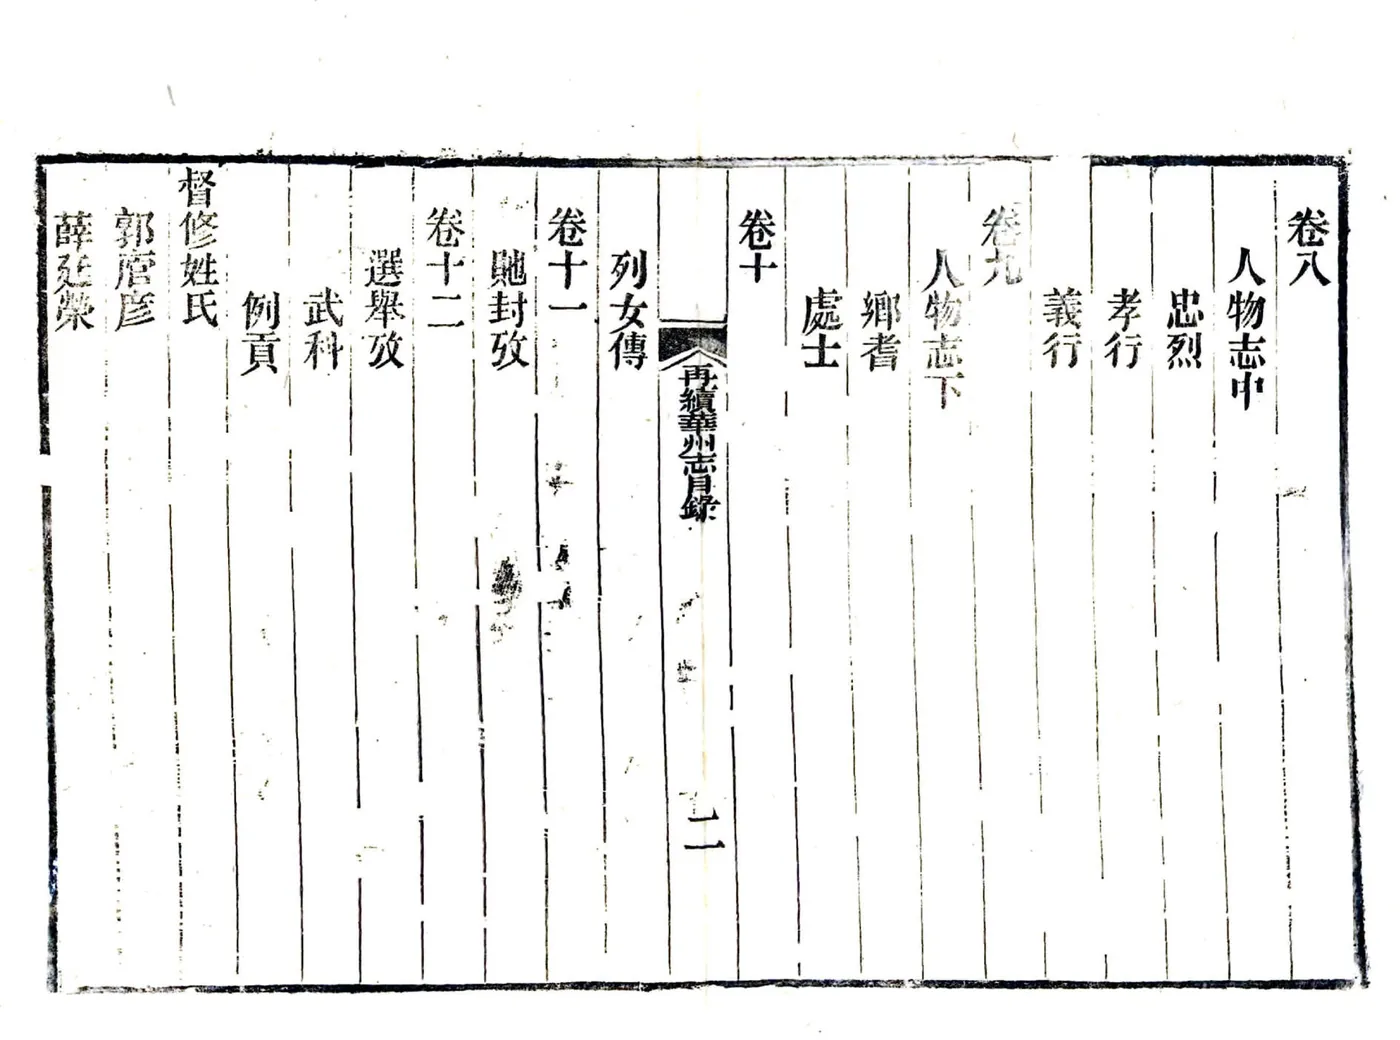 卷八
人物志中
忠烈
孝行
義行
卷九
人物志下
鄉耆
處士
卷十
再續華州志目錄
二
列女傳
卷十一
貤封攷
卷十二
選舉攷
武科
例貢
督修姓氏
郭彦
薛廷榮